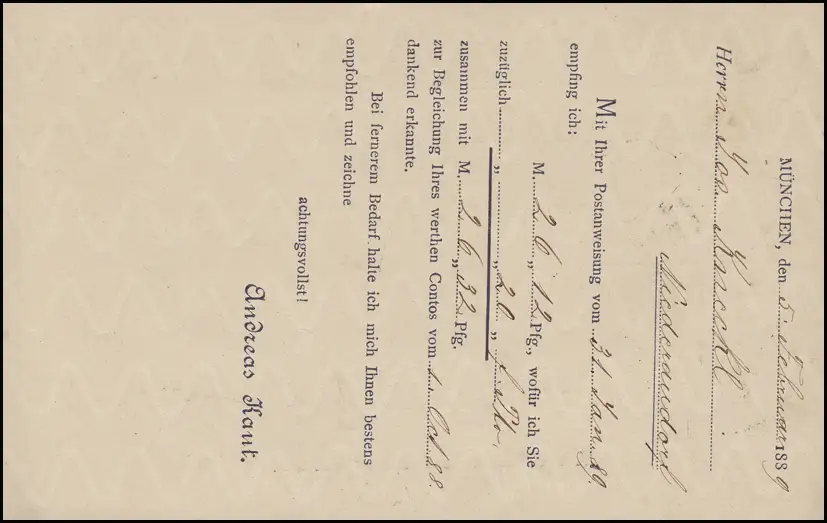 MÜNCHEN, den 5. Februar 1889
Herrn Jos. Kareckl
Niederaudorf
Mit Ihrer Postanweisung vom 31. Jan. 89.
empfing ich:
M. 26 „ 12 Pfg., wofür ich Sie
zuzüglich „ „ 20 „
zusammen mit M. 26 „ 32 Pfg.
zur Begleichung Ihres werthen Contos vom 1. Oct. 88.
dankend erkannte.
Bei fernerem Bedarf halte ich mich Ihnen bestens
empfohlen und zeichne
achtungsvollst!
Andreas Kaut.